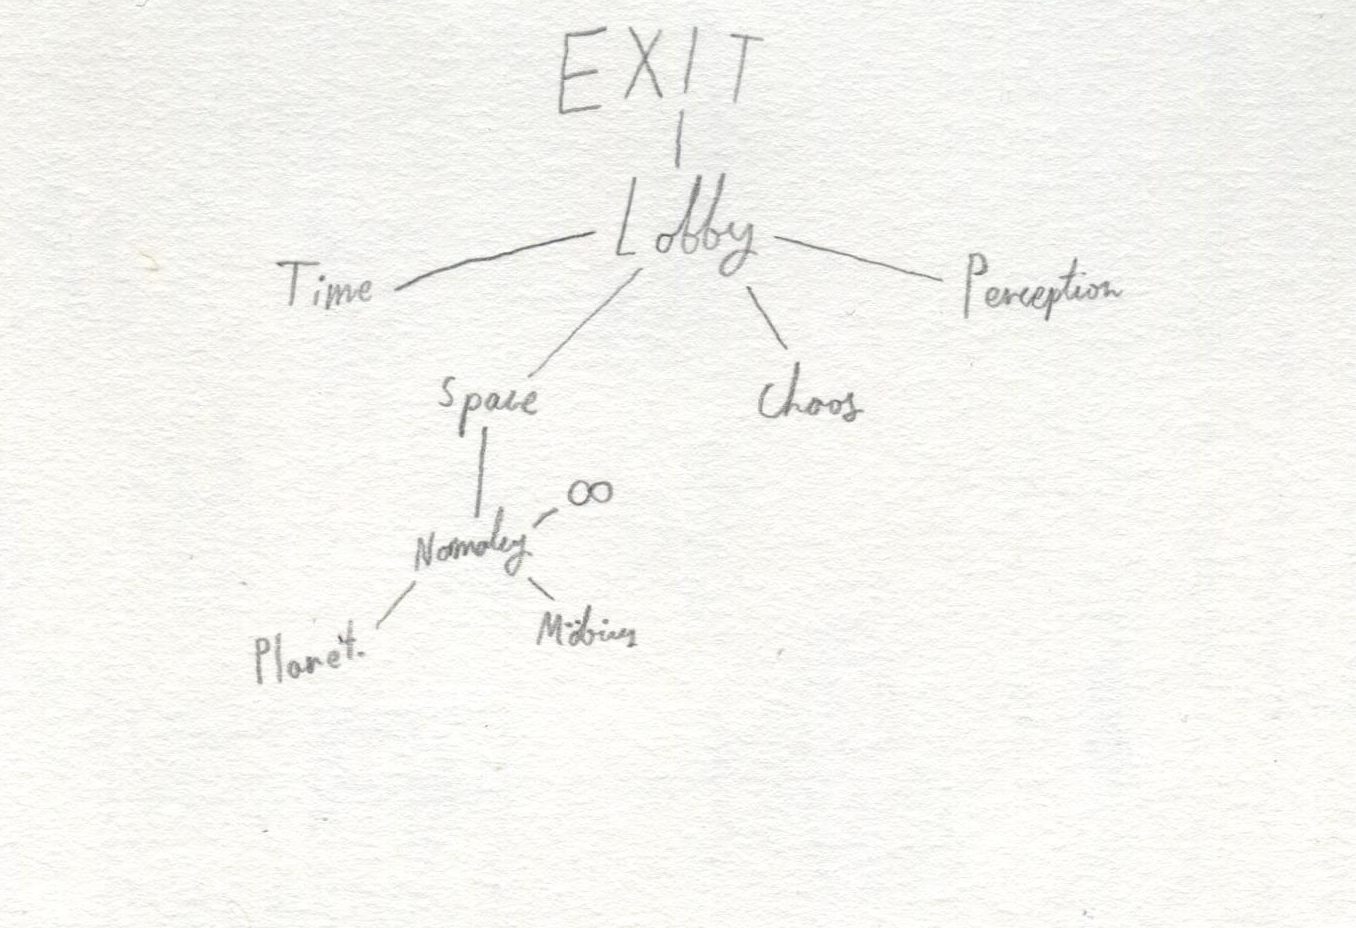 EXIT
Lobby
Time
Perception
Space
Chaos
∞
Normaley
Planet.
Möbius